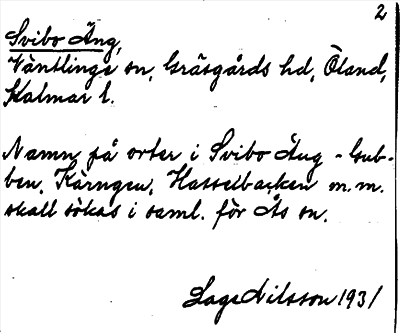 2
Svibo Äng,
Ventlinge sn, Gräsgårds hd, Öland,
Kalmar l.
Namn på orter i Svibo Äng - Gub-
ben, Käringen, Hasselbacken m.m.
skall sökas i saml. för Ås sn.
Lage Nilsson 1931